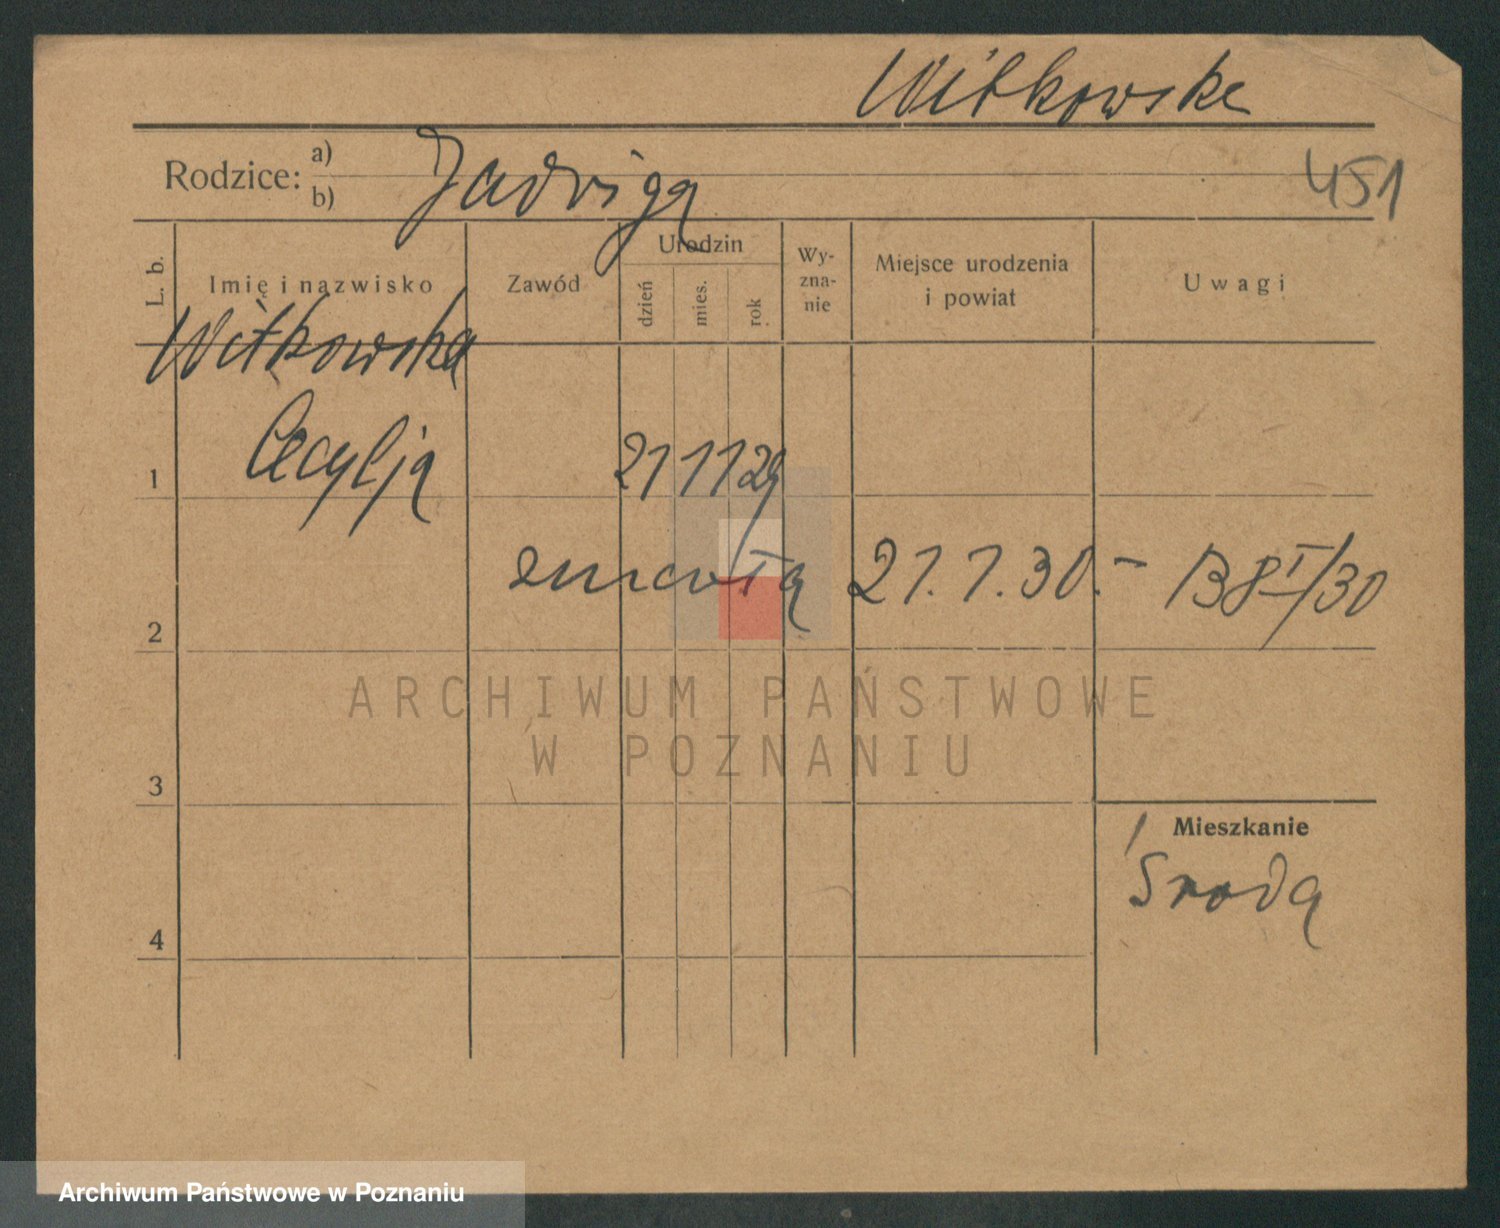 Witkowska
Rodzice: a)
b)
Jadwiga
451
L. b.
Imię i nazwisko
Zawód
Urodzin
dzień
mies.
rok
Wy-
zna-
nie
Miejsce urodzenia
i powiat
Uwagi
Witkowska
1
Cecylja
21 11 29
2
zmarła 21.1.30. –
ARCHIWUM PAŃSTWOWE
W POZNANIU
3
Mieszkanie
Środa
4
Archiwum Państwowe w Poznaniu